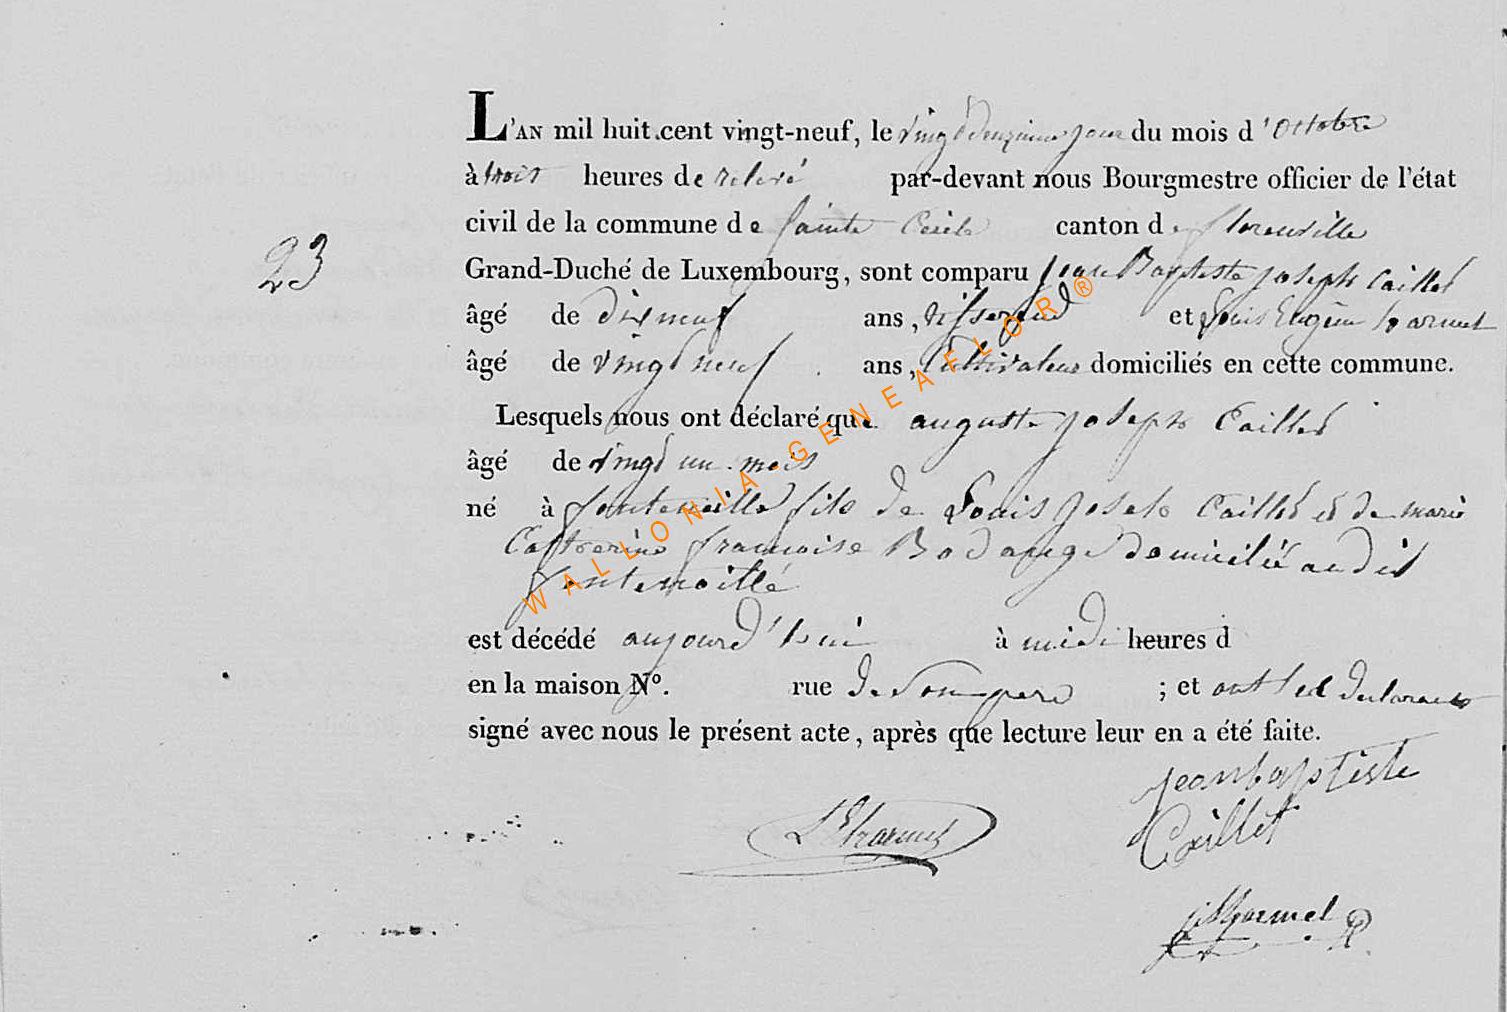 L'AN mil huit cent vingt-neuf, le vingt deuxieme jour du mois d'octobre
à trois heures de relevé par-devant nous Bourgmestre officier de l'état
civil de la commune de Sainte Cecile canton de florenville
23
Grand-Duché de Luxembourg, sont comparu Jean Baptiste joseph Caillet
âgé de dix neuf ans, tisserand et Louis Eugene harmel
âgé de vingt neuf ans, Cultivateur domiciliés en cette commune.
Lesquels nous ont déclaré que auguste joseph Caillet
âgé de vingt un mois
né à fontenoille fils de Louis joseph Caillet et de marie
Catherine françoise Bodange domicilié audit
fontenoille
est décédé aujourd'hui à midi heures d
en la maison N°. rue de ; et ont les declarants
signé avec nous le présent acte, après que lecture leur en a été faite.
jean baptiste
Caillet
L E harmel
harmel
WALLONIA-GENEAFLOR®